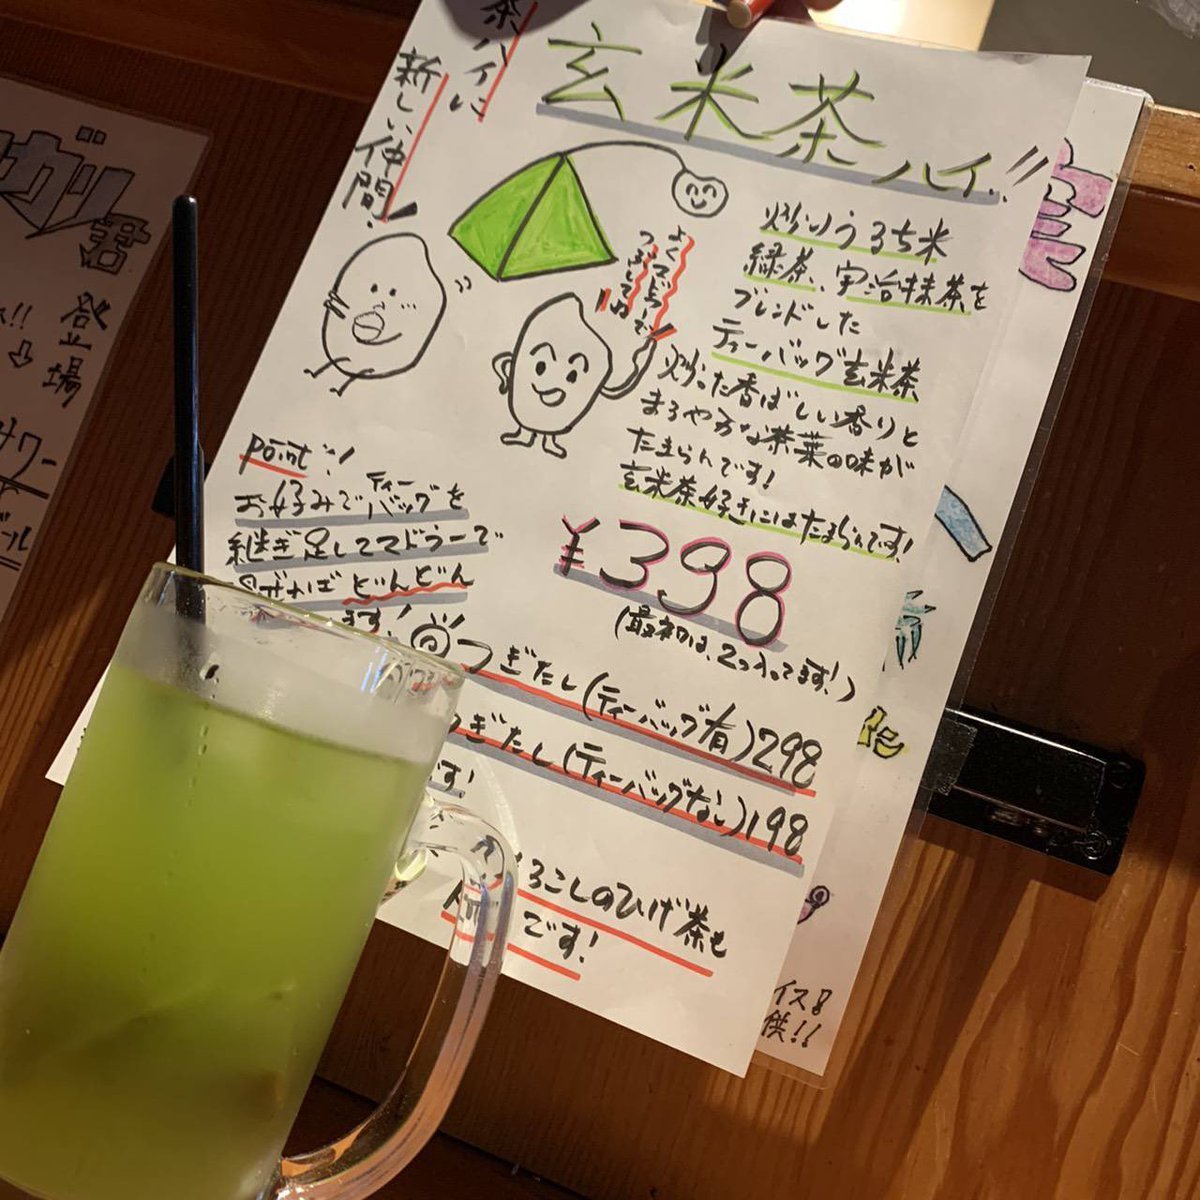 茶ハイに
新しい仲間!
玄米茶ハイ!!
炒りうるち米
緑茶、宇治抹茶を
ブレンドした
ティーバッグ玄米茶
炒った香ばしい香りと
まろやかな茶葉の味が
たまらんです!
玄米茶好きにはたまらんです!
よくマドラーで
つぶしてね
¥398
(最初は、2つ入ってます!)
point!
お好みでティーバッグを
継ぎ足してマドラーで
ば どんどん
ます!
つぎたし(ティーバッグ有)298
つぎたし(ティーバッグなし)198
です!
ろこしのひげ茶も
です!
ガリ
君
登場
サワー
ール
イス!
供!!